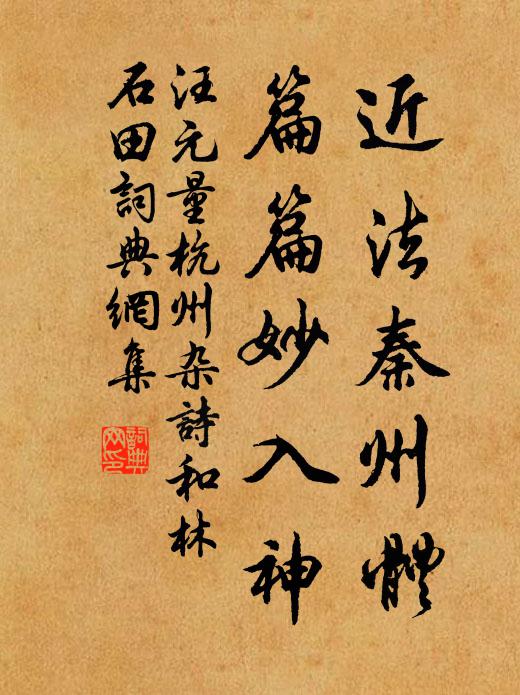 近法秦州體
篇篇妙入神
汪元量杭州杂詩和林
石田詞典網集
詞典
网印